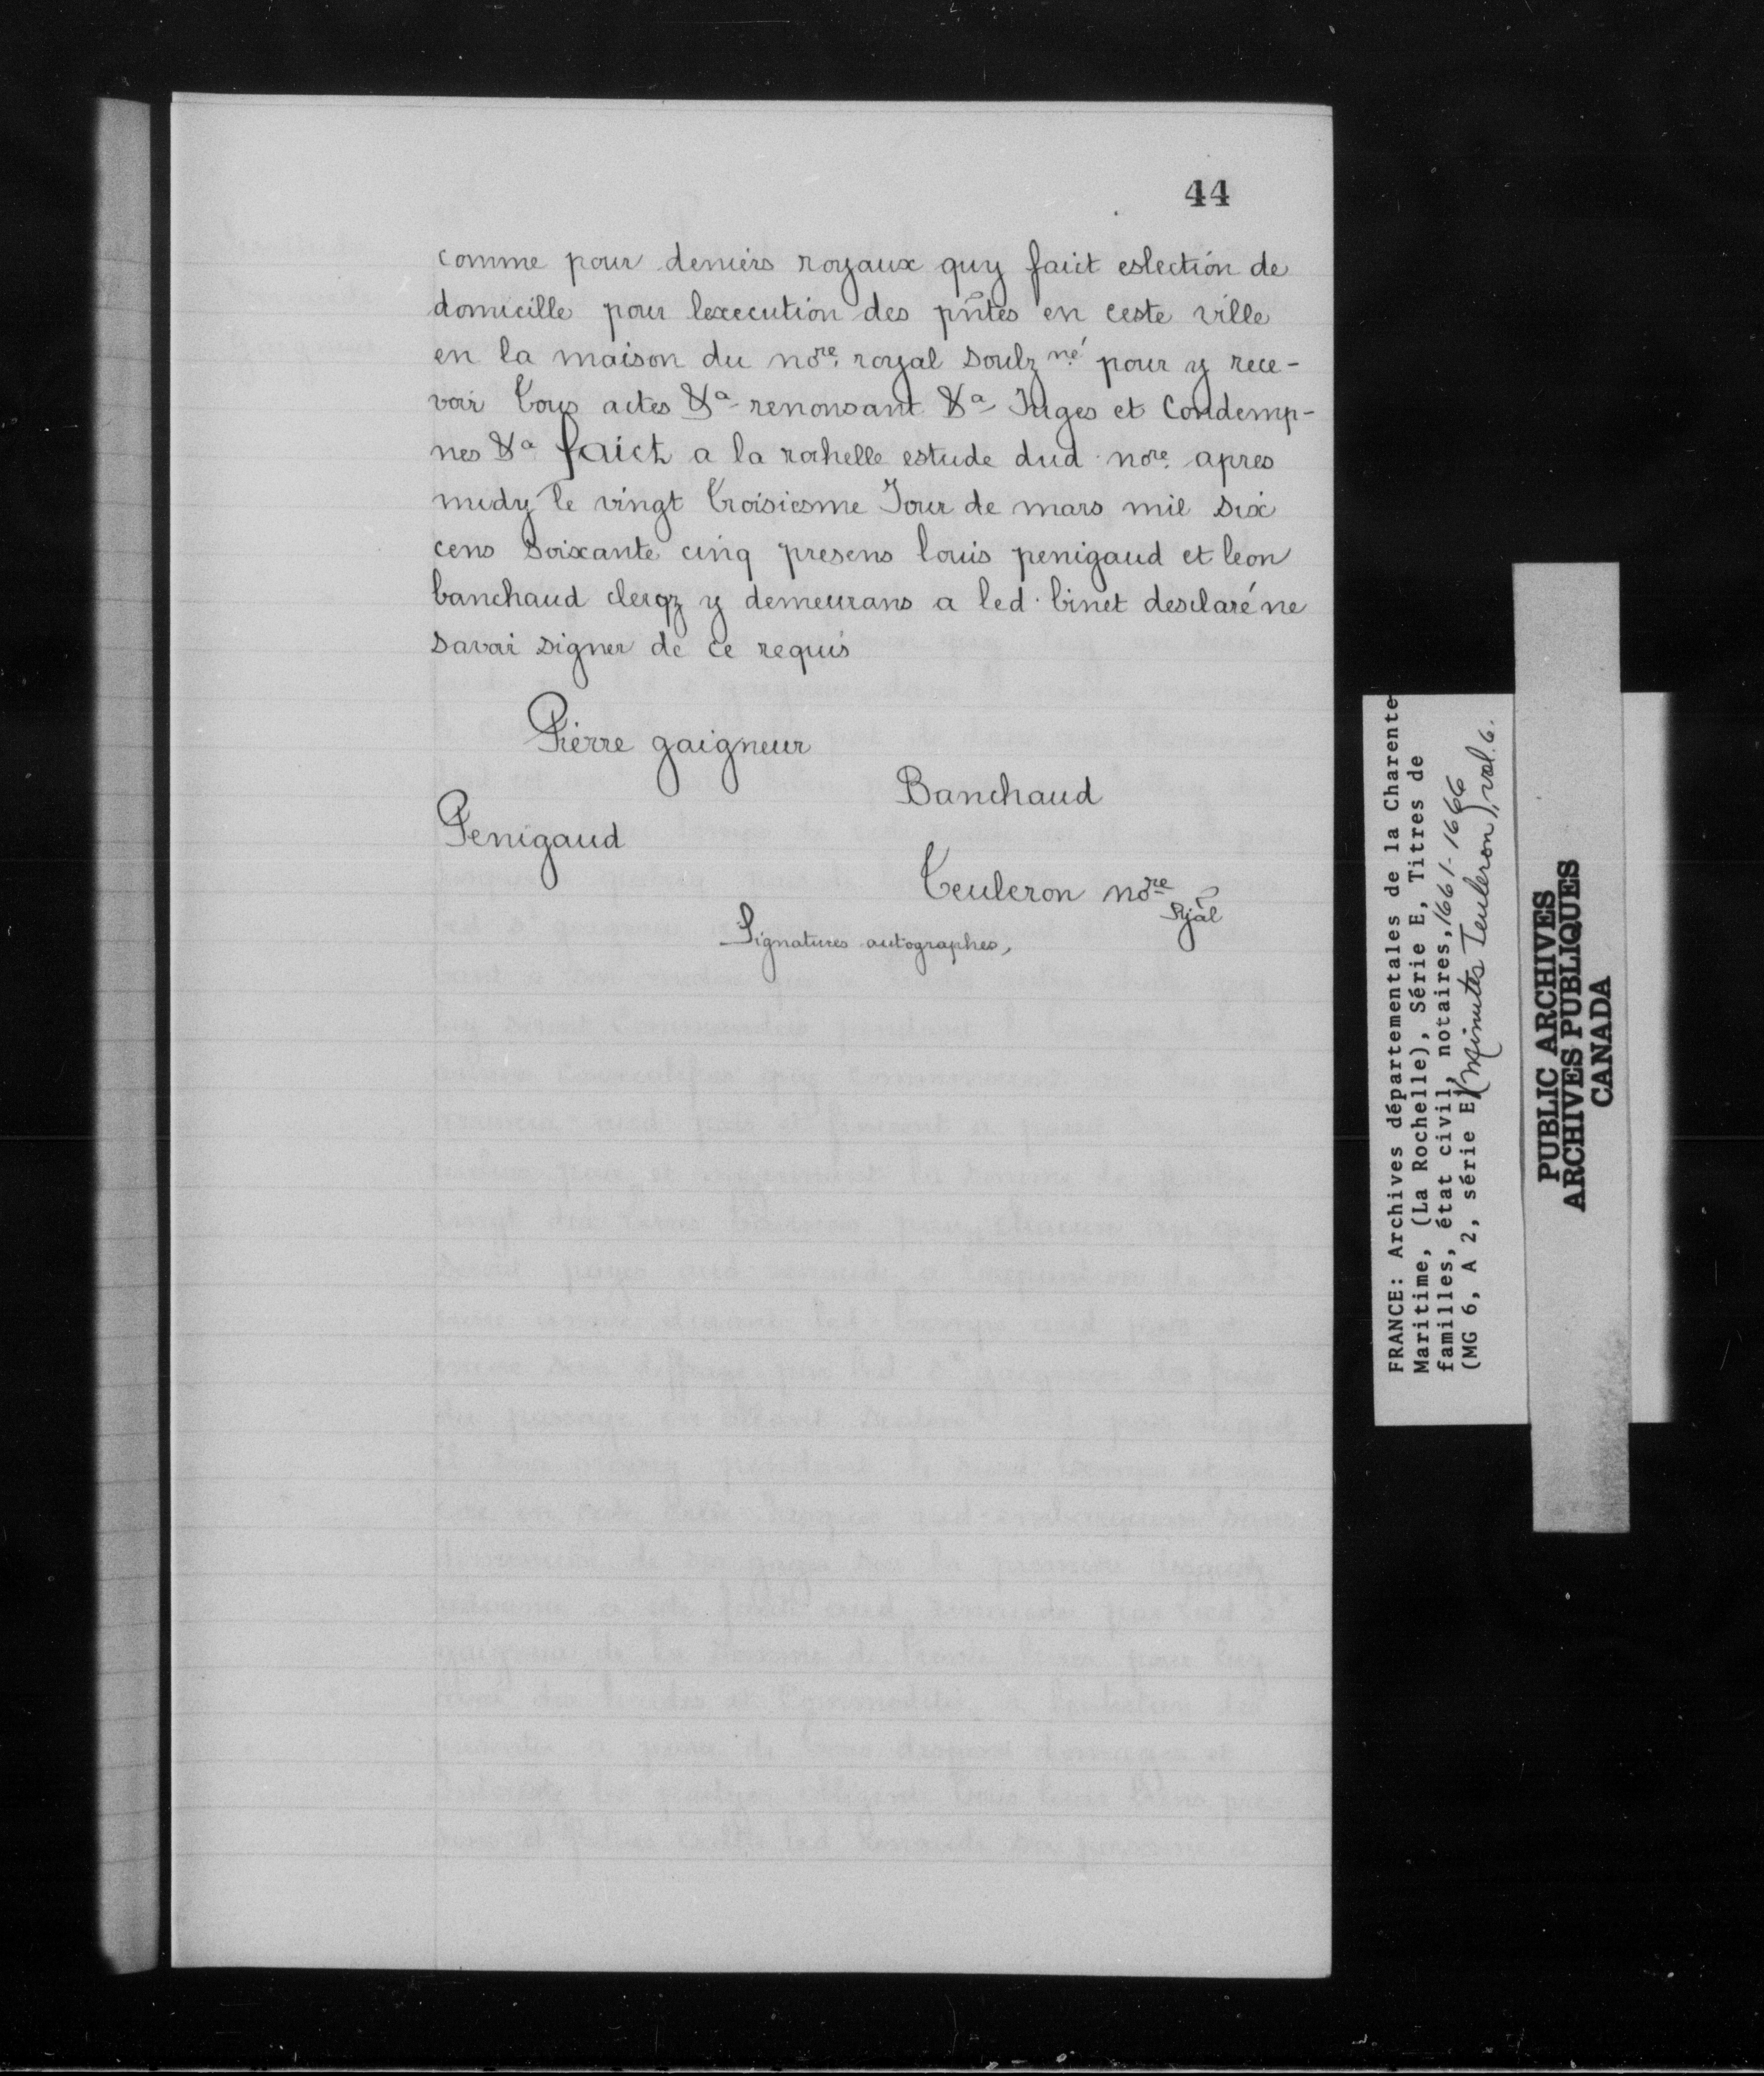 44
comme pour deniers royaux quy faict eslection de
domicille pour lexecution des pñtes en ceste ville
en la maison du no.re royal soulz né pour y rece-
voir tous actes &a renonsant &a Juges et Condemp-
nes &a faict a la rochelle estude dud nore. apres
midy le vingt troisiesme Jour de mars mil six
cens soixante cinq presens louis penigaud et leon
banchaud clerqz y demeurans a led. binet desclaré ne
savoir signer de ce requis
Pierre gaigneur
Banchaud
Penigaud
Teuleron nore
Rjal
Signatures autographes,
FRANCE: Archives départementales de la Charente
Maritime, (La Rochelle), Série E, Titres de
familles, état civil, notaires, 1661-1666
(MG 6, A 2, série E) (Minutes Teuleron), vol. 6.
PUBLIC ARCHIVES
ARCHIVES PUBLIQUES
CANADA